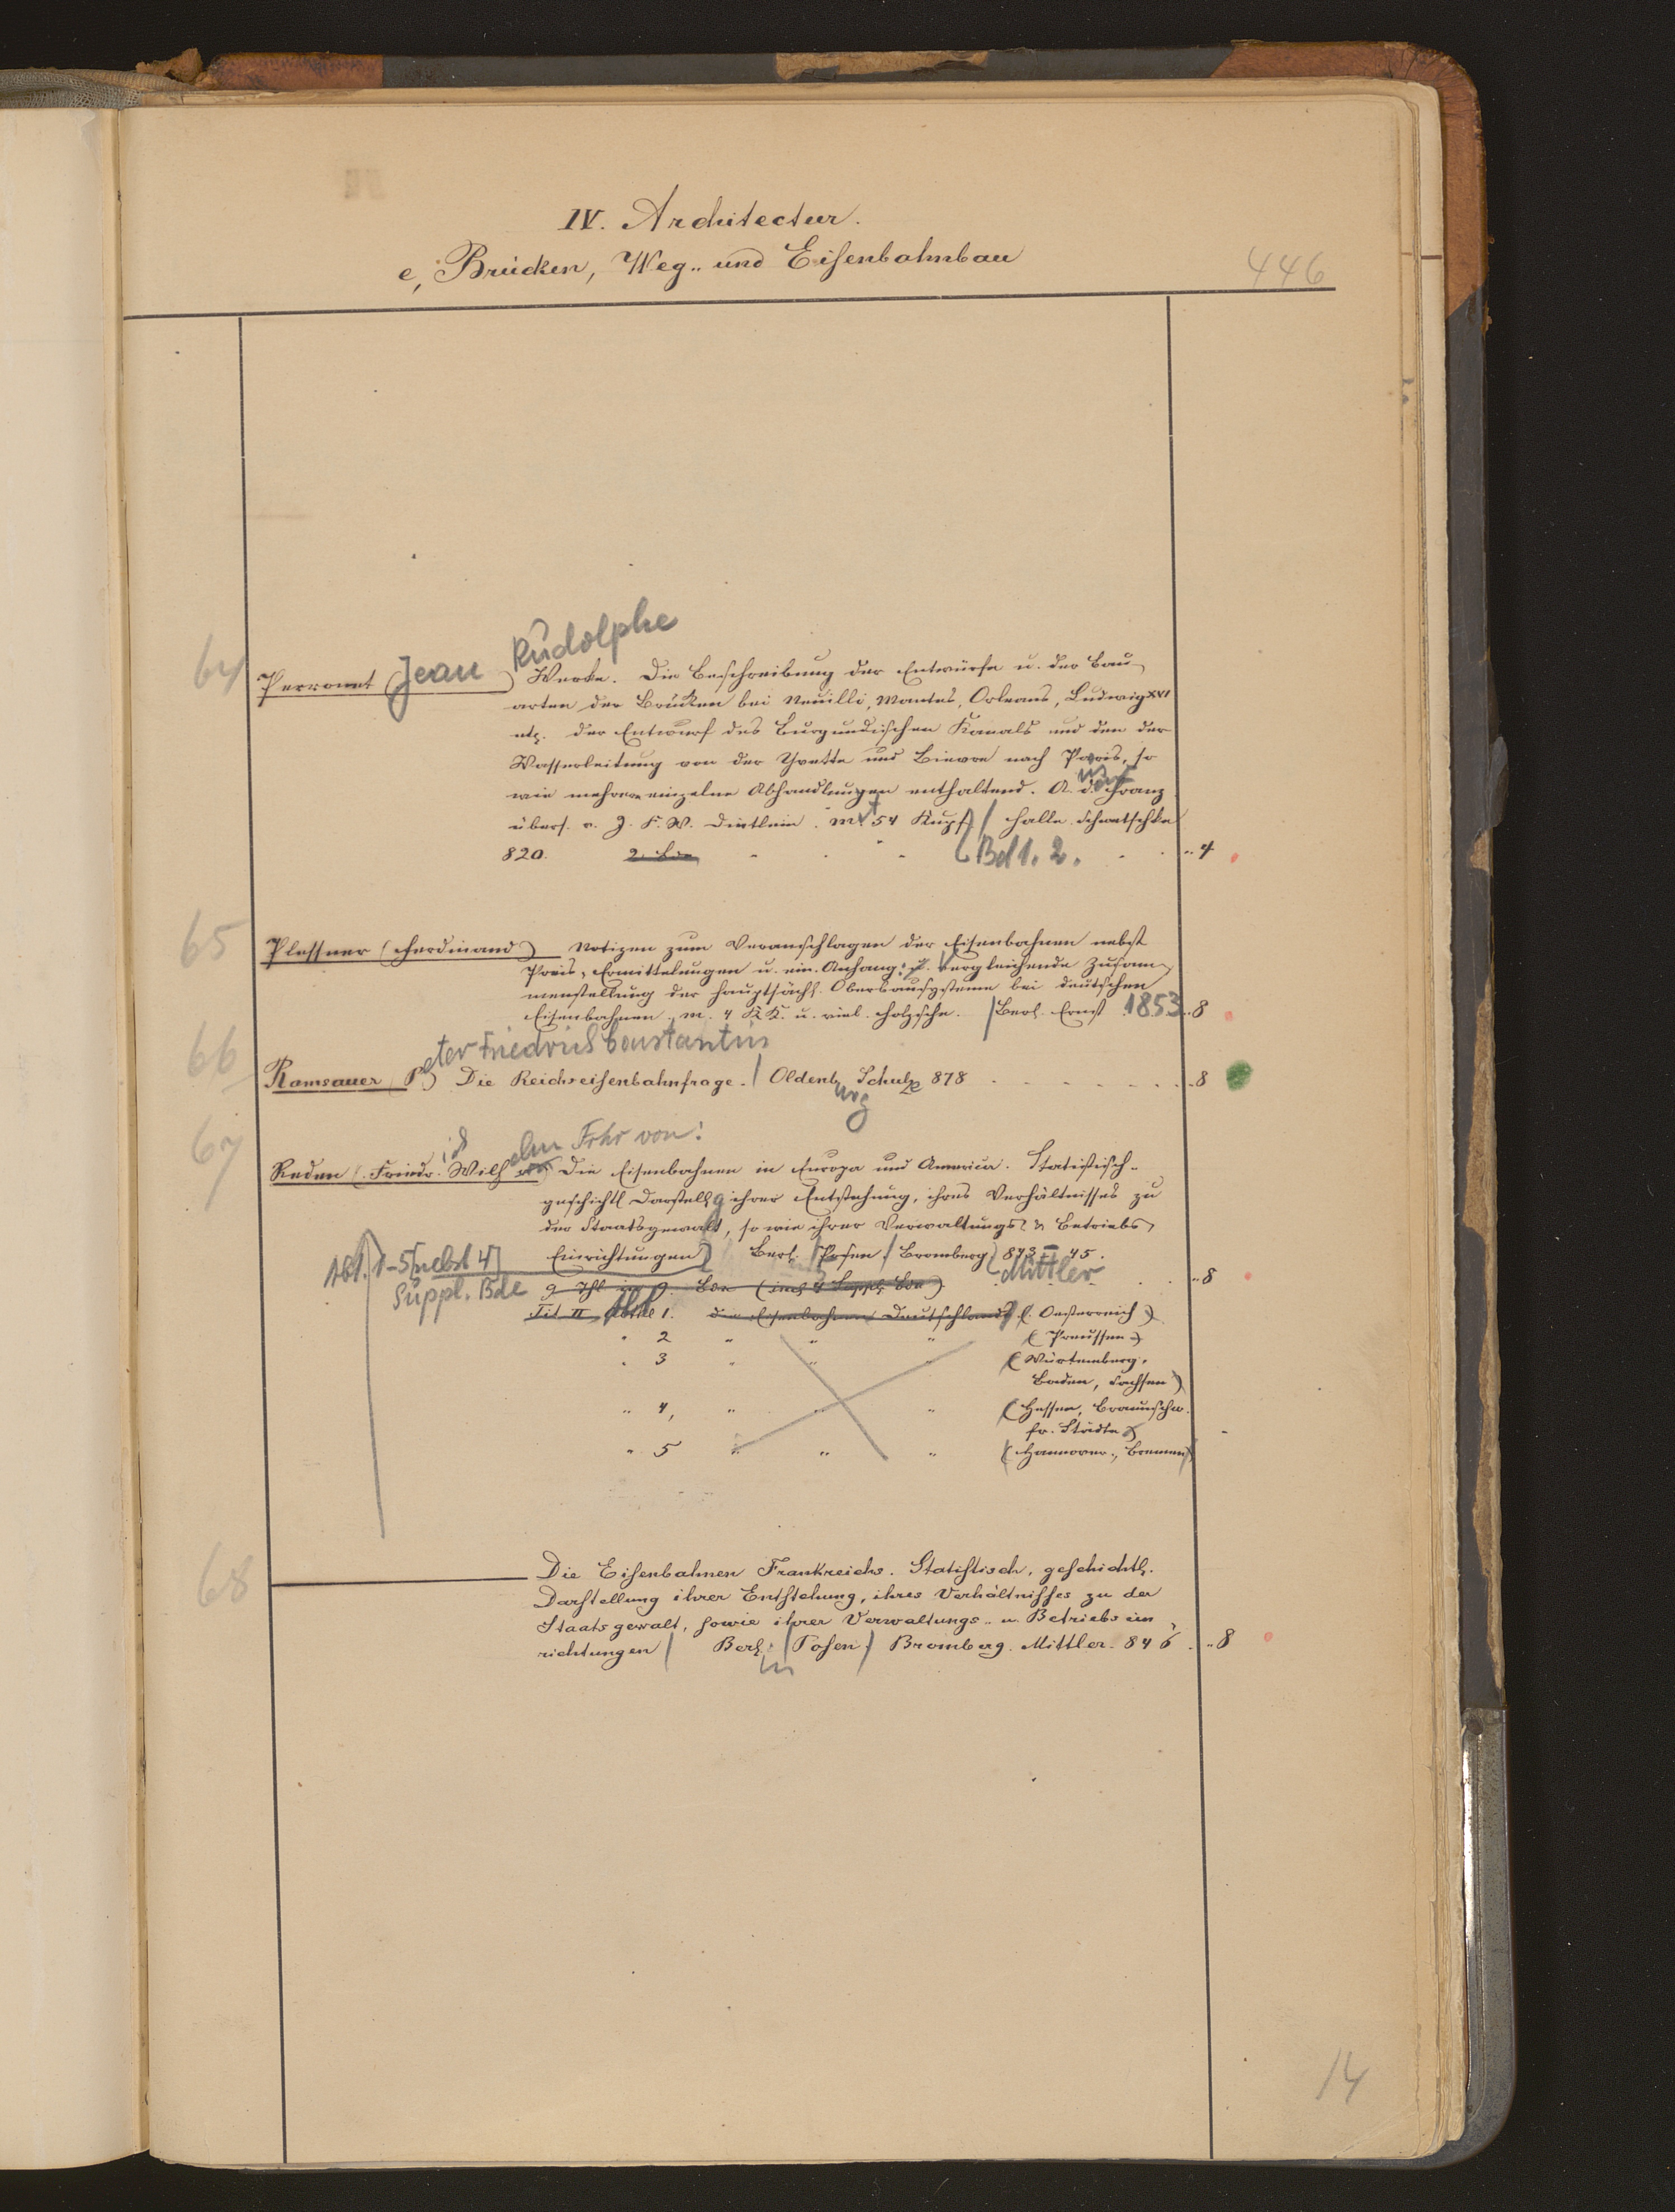 IV. Architectur.
e, Brücken, Weg- und Eisenbahnbau
446
64
Perronet (Jean Rudolphe) Werke. Die Beschreibung der Entwürfe u. der Bau-
arten der Brücken bei Neuilli, Mantes, Orleans, Ludwig XVI
etz. der Entwurf des Burgundischen Kanals und den der
Wasserleitung von der Yvette und Bievre nach Paris, so
wie mehrere einzelne Abhandlungen enthaltend. A. d. Franz
übers. v. J. F. W. Dietlein. mit 54 Kupf / Halle Schwetschke
820. 2 Bde Bd 1. 2. .. 4
65
Plessner (Ferdinand) Notizen zum Veranschlagen der Eisenbahnen nebst
Preis-Ermittelungen u. ein. Anhang: Vergleichende Zusam-
menstellung der hauptsächl. Oberbausysteme bei deutschen
Eisenbahnen. m. 4 KK. u. viel. Holzschn. / Berl. Ernst 1853 .. 8
66
eter Friedrich Constantin
Ramsauer (P) Die Reichseisenbahnfrage. / Oldenburg Schulze 878 .. 8
67
Reden (Friedrich Wilhelm Frhr von: Die Eisenbahnen in Europa und America. Statistisch-
geschichtl Darstellg ihrer Entstehung, ihres Verhältnisses zu
der Staatsgewalt, so wie ihrer Verwaltungs & Betriebs-
Einrichtungen) Berl. / Posen / Bromberg) 843 – 45.
Abt. 1-5 [nebst 4]
Suppl. Bde
Mittler .. 8
9 Thl in 9. Bde (incl 4 Suppl. Bde)
Tit II Abthl 1. die Eisenbahnen Deutschlands (Oesterreich)
" 2 " " " (Preussen)
" 3 " " " (Würtemberg,
Baden, Sachsen)
" 4, " " " (Hessen, Braunschw.
fr. Städte)
" 5 " " " (Hannover, Bremen)
68
Die Eisenbahnen Frankreichs. Statistisch, geschichtl.
Darstellung ihrer Entstehung, ihres Verhältnisses zu der
Staatsgewalt, sowie ihrer Verwaltungs- u. Betriebsein
richtungen / Berlin / Posen / Bromberg. Mittler. 846 .. 8
14